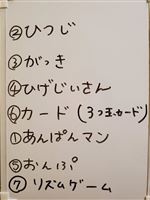 ②ひつじ
③がっき
④ひげじいさん
⑥カード(3つ玉カード)
①あんぱんマン
⑤おんぷ
⑦リズムゲーム